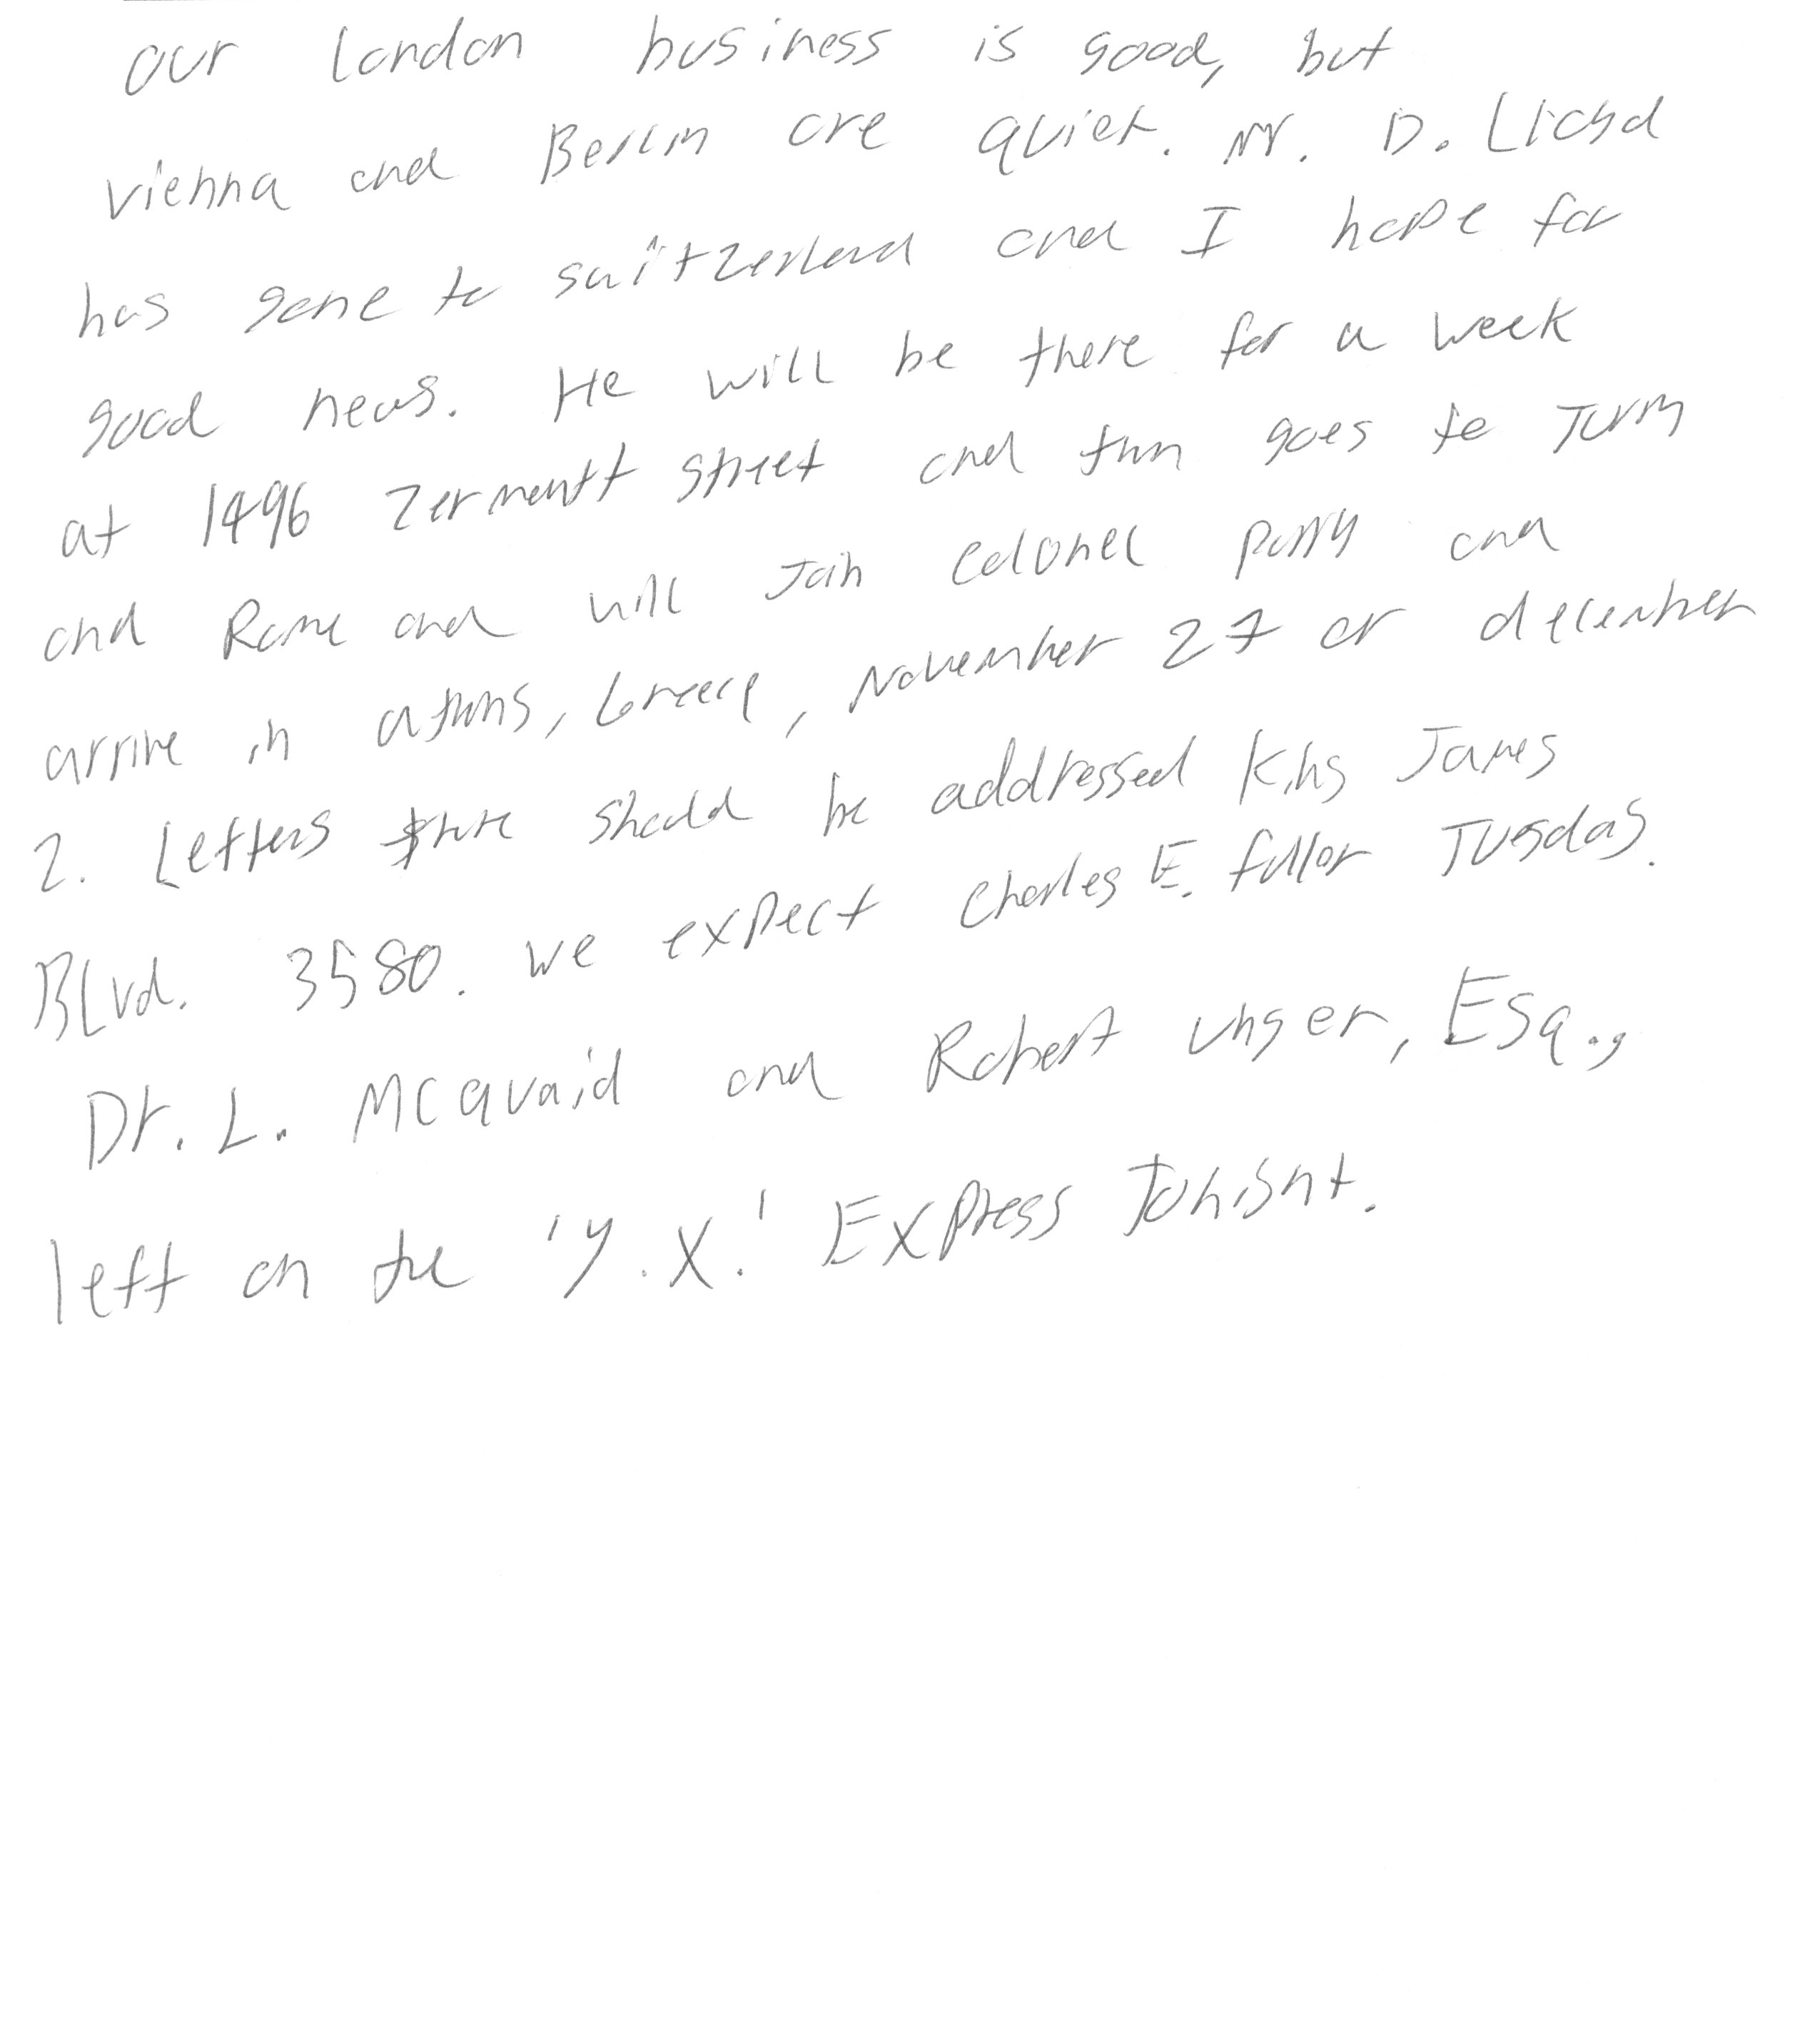 our london business is good, but
vienna and Berlin are quiet. Mr. D. Lloyd
has gone to switzerland and I hope for
good news. He will be there for a week
at 1496 Zermott street and then goes to Turin
and Rome and will Join Colonel Parry and
arrive in athens, Greece, November 27 or december
2. Letters there should be addressed King James
Blvd. 3580. We expect Charles E. fuller Tuesday.
Dr. L. McQuaid and Robert Unger, Esq.,
left on the 'Y.X.' Express Tonight.